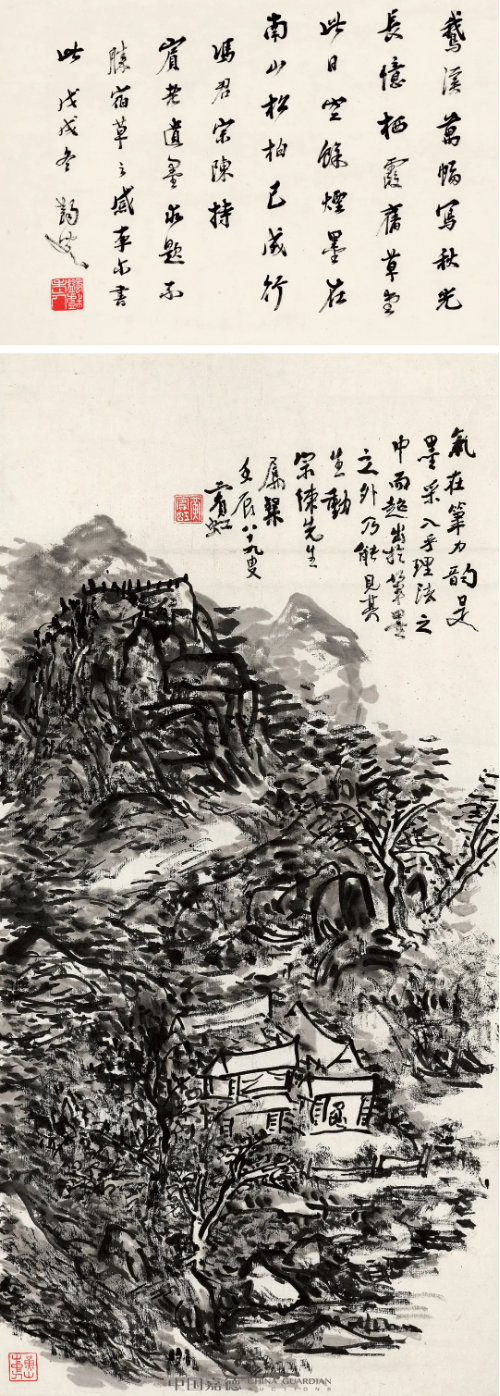 鵝溪萬幅寫秋光
長憶栖霞舊草堂
此日空餘煙墨在
南山松柏已成行
馮君宗陳持
賓老遺墨索題不
勝宿草之感率爾書
此戊戌冬
氣在筆力韵是
墨采入乎理法之
中而超出於筆墨
之外乃能見其
生動
宗陳先生
屬粲
壬辰八十九叟
賓虹
中国嘉德 CHINA GUARDIAN
AUCTIONS